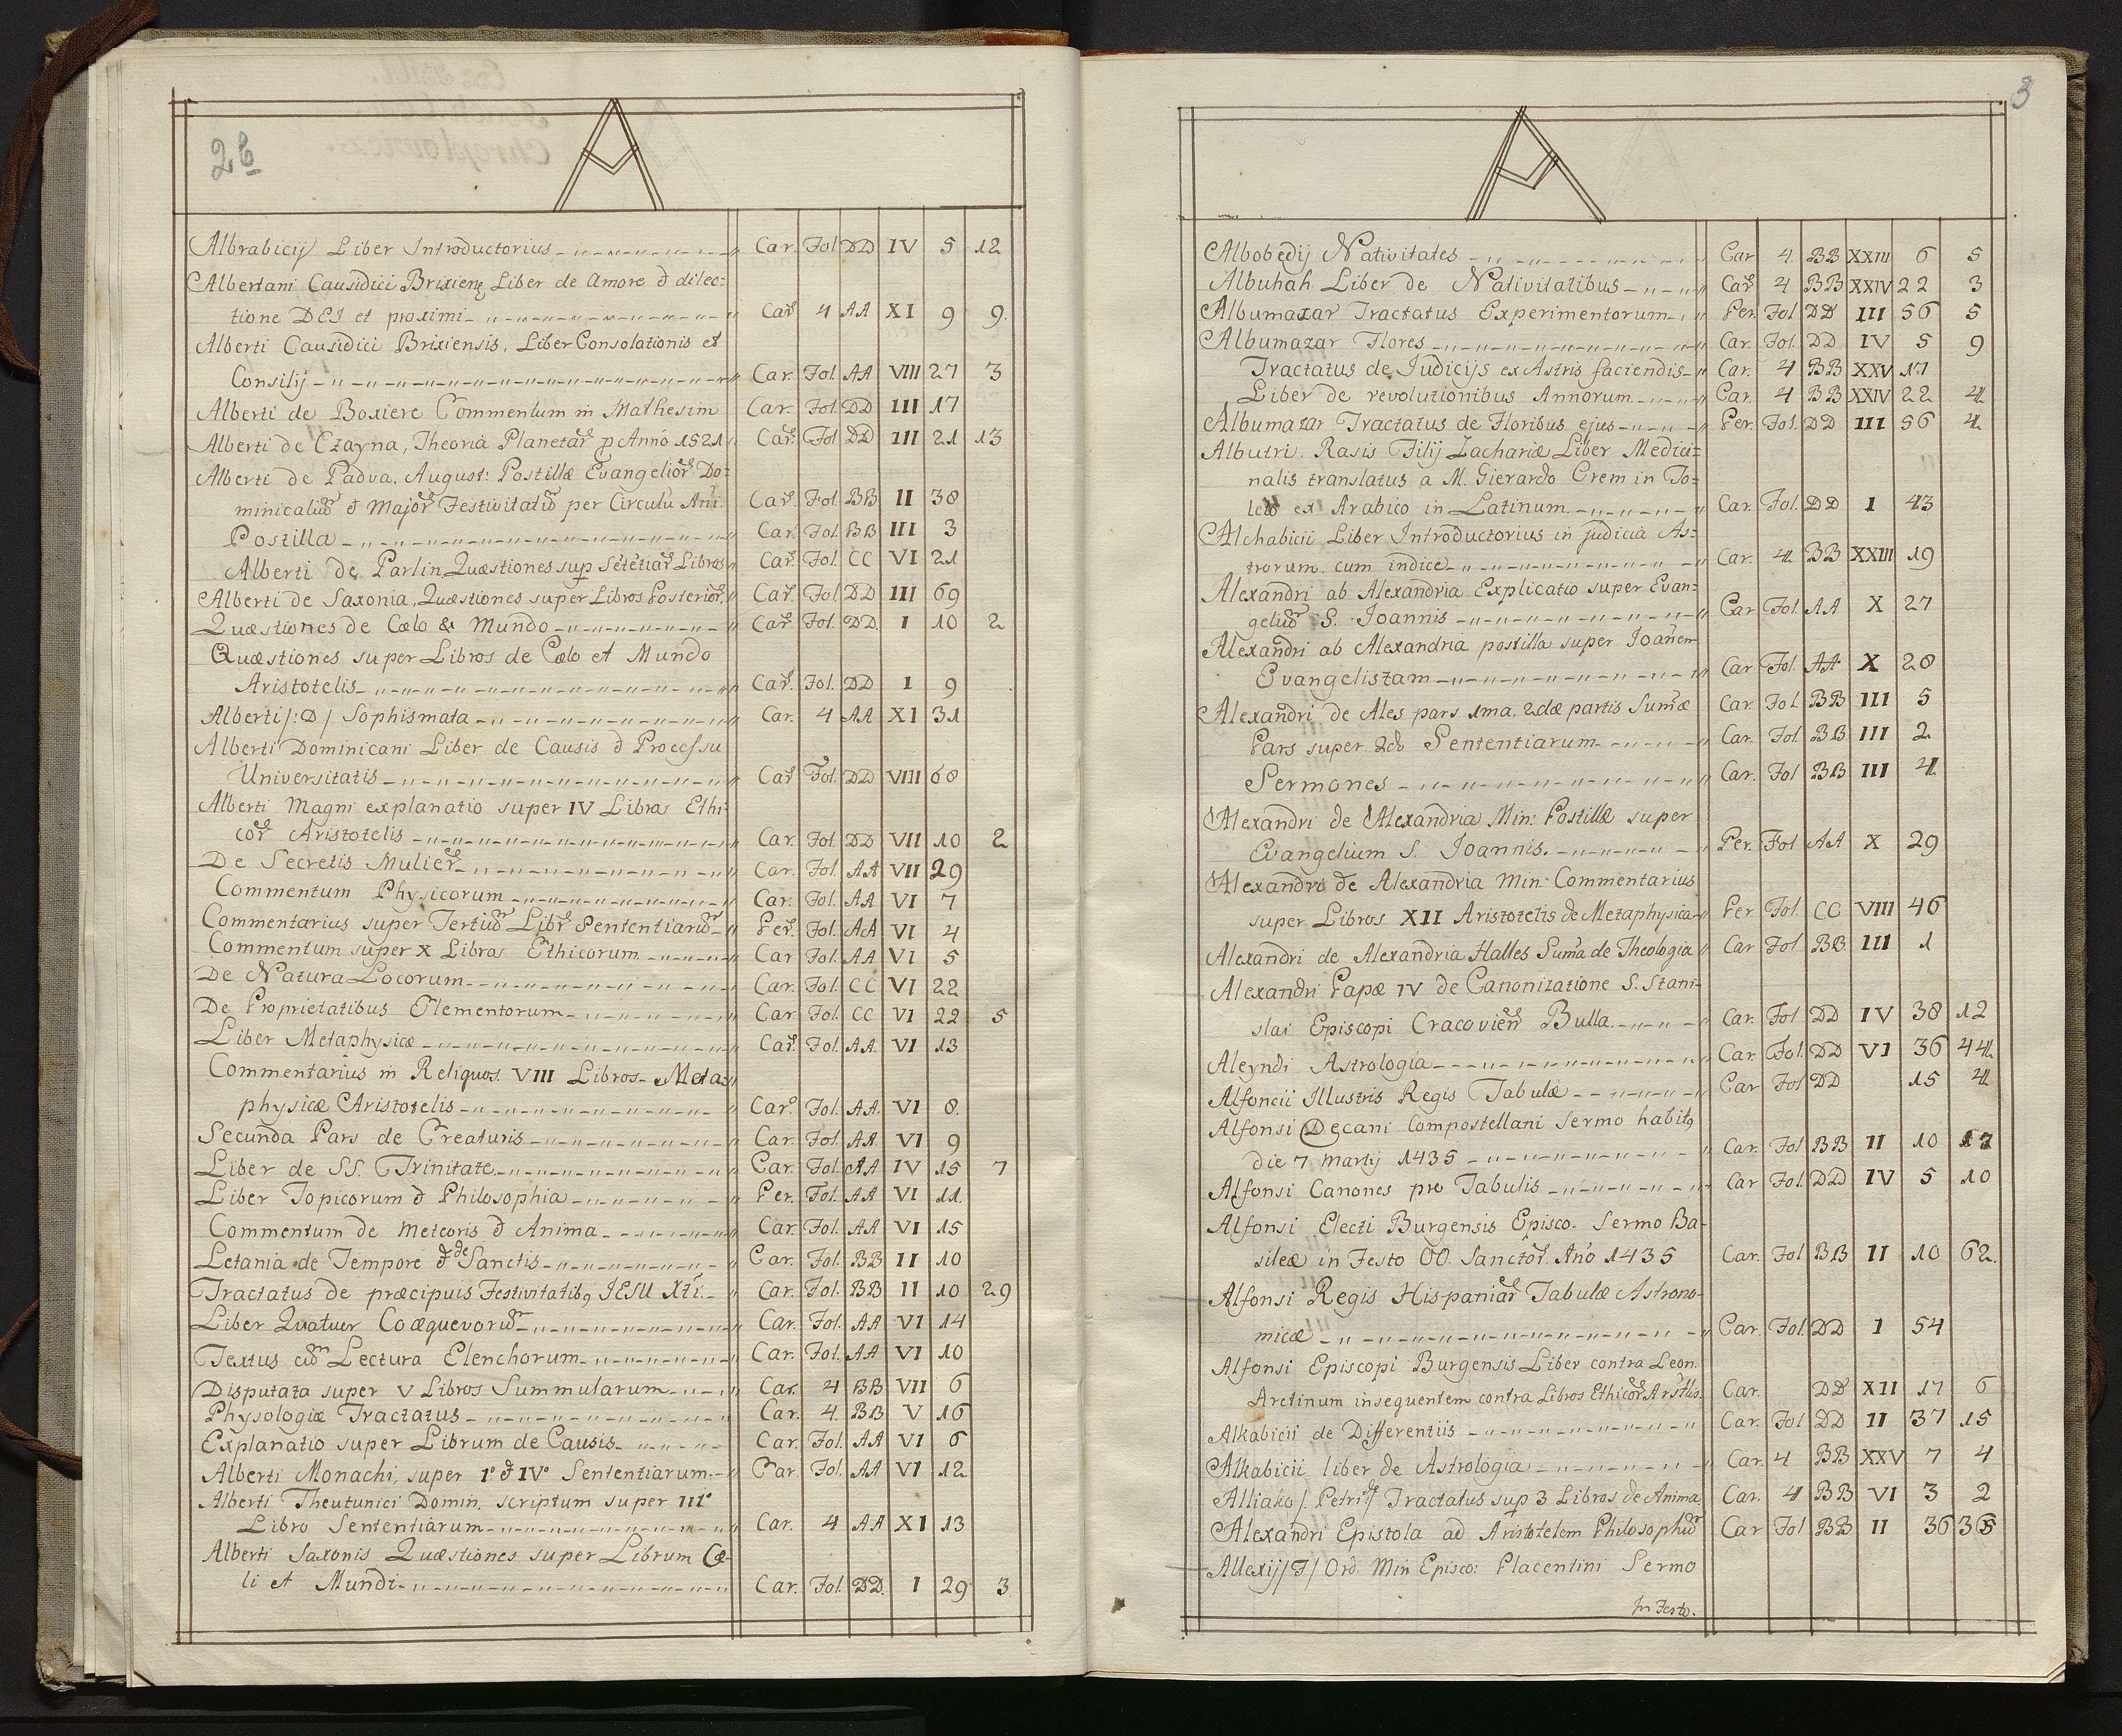 2b
A
Albrabicij Liber Introductorius Car. Fol DD IV 5 12
Albertani Causidici Brixienę Liber de Amore & dilec:
tione DEI et proximi Car 4 AA XI 9 9.
Alberti Causidici Brixiensis, Liber Consolationis et
Consilij Car. Fol. AA VIII 27 3
Alberti de Boxiere Commentum in Mathesim Car. Fol. DD III 17
Alberti de Czayna, Theoria Planetar p Anno 1521 Car. Fol DD III 21 13
Alberti de Padva, August: Postillæ Evangelior Do:
minicaliu & Major Festivitatu per Circulu Ani. Car. Fol BB II 38
Postilla Car. Fol. BB III 3
Alberti de Parlin Quæstiones sup Setetiar Libros Car. Fol. CC VI 21
Alberti de Saxonia, Quæstiones super Libros Posterior. Car. Fol DD III 69
Quæstiones de Cælo & Mundo Car. Fol. DD. I 10 2
Quæstiones super Libros de Cælo et Mundo
Aristotelis Car. Fol. DD I 9
Alberti /:D/ Sophismata Car. 4 AA XI 31
Alberti Dominicani Liber de Causis & Processu
Universitatis Car Fol. DD VIII 68
Alberti Magni explanatio super IV Libros Ethi:
cor Aristotelis Car. Fol. DD VII 10 2
De Secretis Mulier Car. Fol. AA VII 29
Commentum Physicorum Car. Fol. AA VI 7
Commentarius super Tertiu Libr Sententiaru Per. Fol. AA VI 4
Commentum super X Libros Ethicorum Car Fol. AA VI 5
De Natura Locorum Car. Fol. CC VI 22
De Proprietatibus Elementorum Car Fol. CC VI 22 5
Liber Metaphysicæ Car. Fol. AA. VI 13
Commentarius in Reliquos VIII Libros Meta:
physicæ Aristotelis Car. Fol. AA. VI 8.
Secunda Pars de Creaturis Car. Fol. AA. VI 9
Liber de SS. Trinitate Car. Fol. AA IV 15 7
Liber Topicorum & Philosophia Per. Fol. AA VI 11.
Commentum de Meteoris & Anima Car. Fol. AA VI 15
Letania de Tempore & de Sanctis Car. Fol. BB II 10
Tractatus de præcipuis Festivitatibꝯ JESU Xti: Car. Fol. BB II 10 29
Liber Quatuer Coæquevoru Car. Fol. AA VI 14
Textus cu Lectura Elenchorum Car. Fol. AA VI 10
Disputata super V Libros Summularum Car. 4 BB VII 6
Physologiæ Tractatus Car. 4. BB V 16
Explanatio super Librum de Causis Car. Fol. AA VI 6
Alberti Monachi, super I° & IV° Sententiarum Car. Fol. AA VI 12
Alberti Theutunici Domin. scriptum super III°
Libro Sententiarum Car. 4 AA XI 13
Alberti Saxonis Quæstiones super Librum Cæ-
li et Mundi Car. Fol. DD. I 29 3
3
A
Albobedij Nativitates Car 4. BB XXIII 6 5
Albuhah Liber de Nativitatibus Car 4 BB XXIV 22 3
Albumaxar Tractatus Experimentorum Per. Fol DD III 56 5
Albumazar Flores Car. Fol. DD IV 5 9
Tractatus de Judicijs ex Astris faciendis Car. 4 BB XXV 17
Liber de revolutionibus Annorum Car. 4 BB XXIV 22 4
Albumazar Tractatus de Floribus ejus Per. Fol. DD III 56 4
Albutri. Rasis Filij Zachariæ Liber Medici:
nalis translatus a M. Gierardo Crem in To:
leto ex Arabico in Latinum Car. Fol. DD I 43
Alchabicii Liber Introductorius in judicia As:
trorum cum indice Car. 4. BB XXIII 19
Alexandri ab Alexandria Explicatio super Evan:
geliu S. Joannis Car Fol. AA X 27
Alexandri ab Alexandria postilla super Joanem
Evangelistam Car Fol. AA X 28
Alexandri de Ales pars 1ma, 2dæ partis Sumæ Car Fol. BB III 5
Pars super 2do Sententiarum Car. Fol BB III 2
Sermones Car. Fol BB III 4
Alexandri de Alexandria Min: Postillæ super
Evangelium S. Joannis. Per. Fol AA X 29
Alexandri de Alexandria Min: Commentarius
super Libros XII Aristotelis de Metaphysica Per Fol. CC VIII 46
Alexandri de Alexandria Halles Suma de Theologia Car Fol BB III 1
Alexandri Papæ IV de Canonizatione S. Stani-
slai Episcopi Cracovien Bulla Car. Fol DD IV 38 12
Aleyndi Astrologia Car. Fol. DD VI 36 44
Alfoncii Illustris Regis Tabulæ Car Fol DD 15 4
Alfonsi Decani Compostellani Sermo habitꝯ
die 7 Martij 1435 Car. Fol BB II 10 17
Alfonsi Canones pro Tabulis Car Fol. DD IV 5 10
Alfonsi Electi Burgensis Episco. Sermo Ba-
sileæ in Festo OO. Sanctor Ano 1435 Car. Fol BB II 10 62.
Alfonsi Regis Hispaniar Tabulæ Astrono-
micæ Car. Fol. DD I 54
Alfonsi Episcopi Burgensis Liber contra Leon.
Aretinum insequentem contra Libros Ethicor Arstlis. Car. DD XII 17 6
Alkabicii de Differentiis Car. Fol DD II 37 15
Alkabicii liber de Astrologia Car. 4 BB XXV 7 4
Alliako /. Petri / Tractatus sup 3 Libros de Anima Car. 4 BB VI 3 2
Alexandri Epistola ad Aristotelem Philosophu Car Fol BB II 36 35
Allexij /F/ Ord. Min Episco: Placentini Sermo
In Festo.